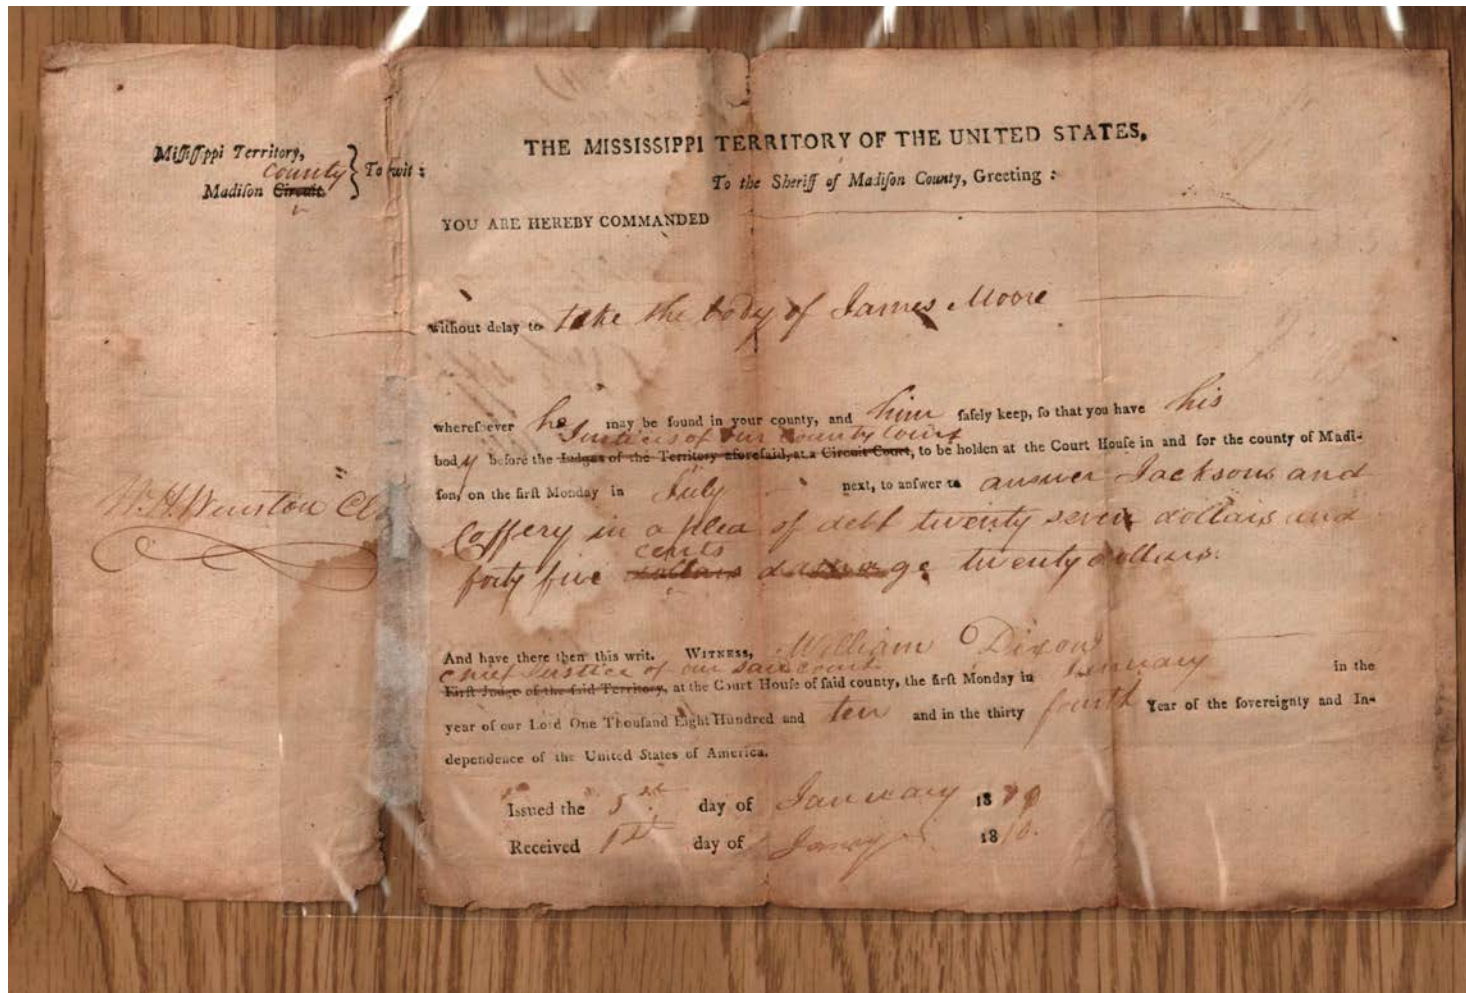 THE MISSISSIPPI TERRITORY OF THE UNITED STATES,
Miſſiſſippi Territory,
county
Madiſon Circuit.
To wit:
To the Sheriff of Madiſon County, Greeting:
YOU ARE HEREBY COMMANDED
without delay to take the body of James Moore
whereſoever he may be found in your county, and him ſafely keep, ſo that you have his
Justices of our County Court
body before the Judges of the Territory aforeſaid, at a Circuit Court, to be holden at the Court Houſe in and for the county of Madi-
ſon, on the firſt Monday in July next, to anſwer to answer Jacksons and
W. H. Winston
Coffery in a plea of debt twenty seven dollars and
cents
forty five dollars damage twenty dollars.
And have there then this writ. WITNESS, William Dixon
chief Justice of our said court
Firſt Judge of the ſaid Territory, at the Court Houſe of ſaid county, the firſt Monday in January in the
year of our Lord One Thouſand Eight Hundred and ten and in the thirty fourth Year of the ſovereignty and In-
dependence of the United States of America.
Issued the day of January 18
Received 1st day of Jany 1810.